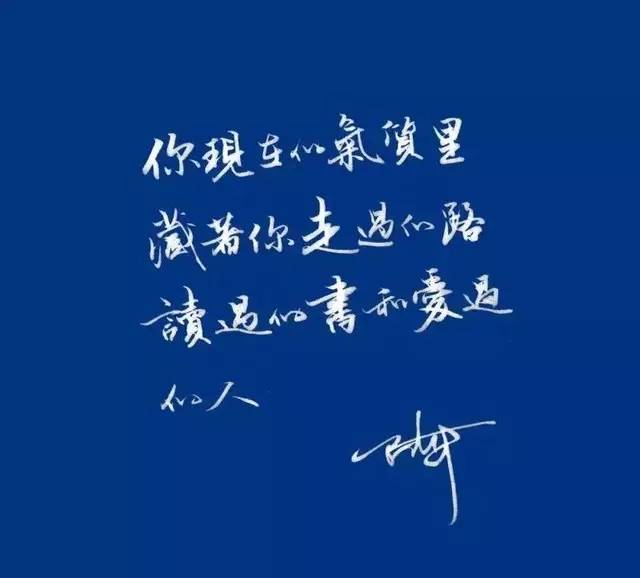 你現在的氣質里
藏著你走過的路
讀過的書和愛過
的人